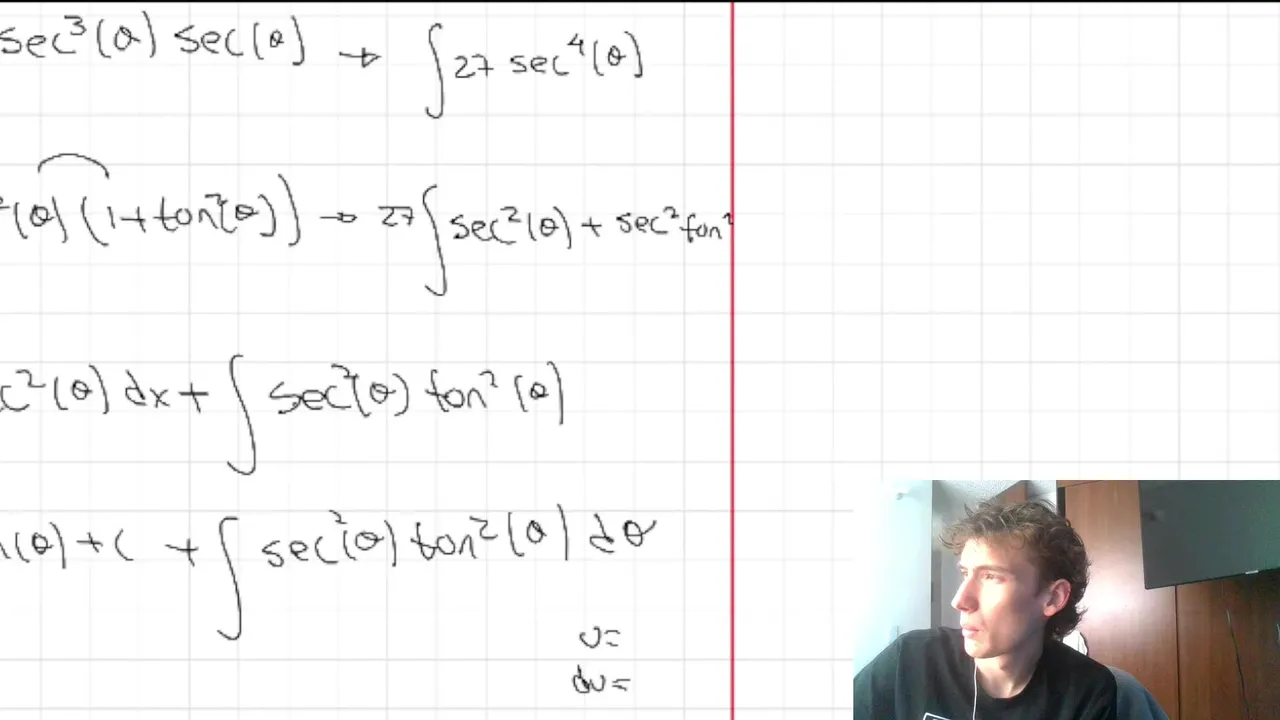 sec³(θ) sec(θ) → ∫ 27 sec⁴(θ)
²(θ) (1 + tan²(θ)) → 27 ∫ sec²(θ) + sec² tan²
c²(θ) dx + ∫ sec²(θ) tan² (θ)
n(θ) + C + ∫ sec²(θ) tan²(θ) dθ
u=
du=